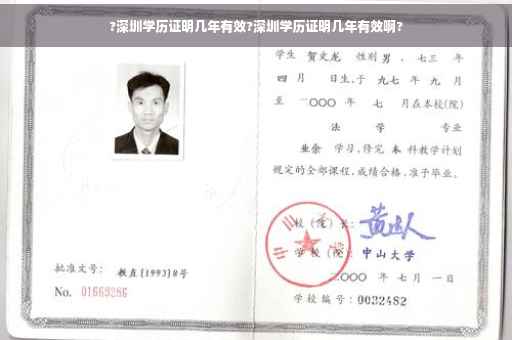 ?深圳学历证明几年有效?深圳学历证明几年有效啊?
学生 贺文龙 性别 男 、七三 年
四 月 日生,于 九七 年 九 月
至 二〇〇〇 年 七 月在本校(院)
法 学 专业
业余 学习,修完 本 科教学计划
规定的全部课程,成绩合格,准予毕业。
校(院)长:
学校(院): 中山大学
二〇〇〇 年 七 月 一 日
学校编号: 0032482
批准文号: 教直[1993]8号
No. 01669286